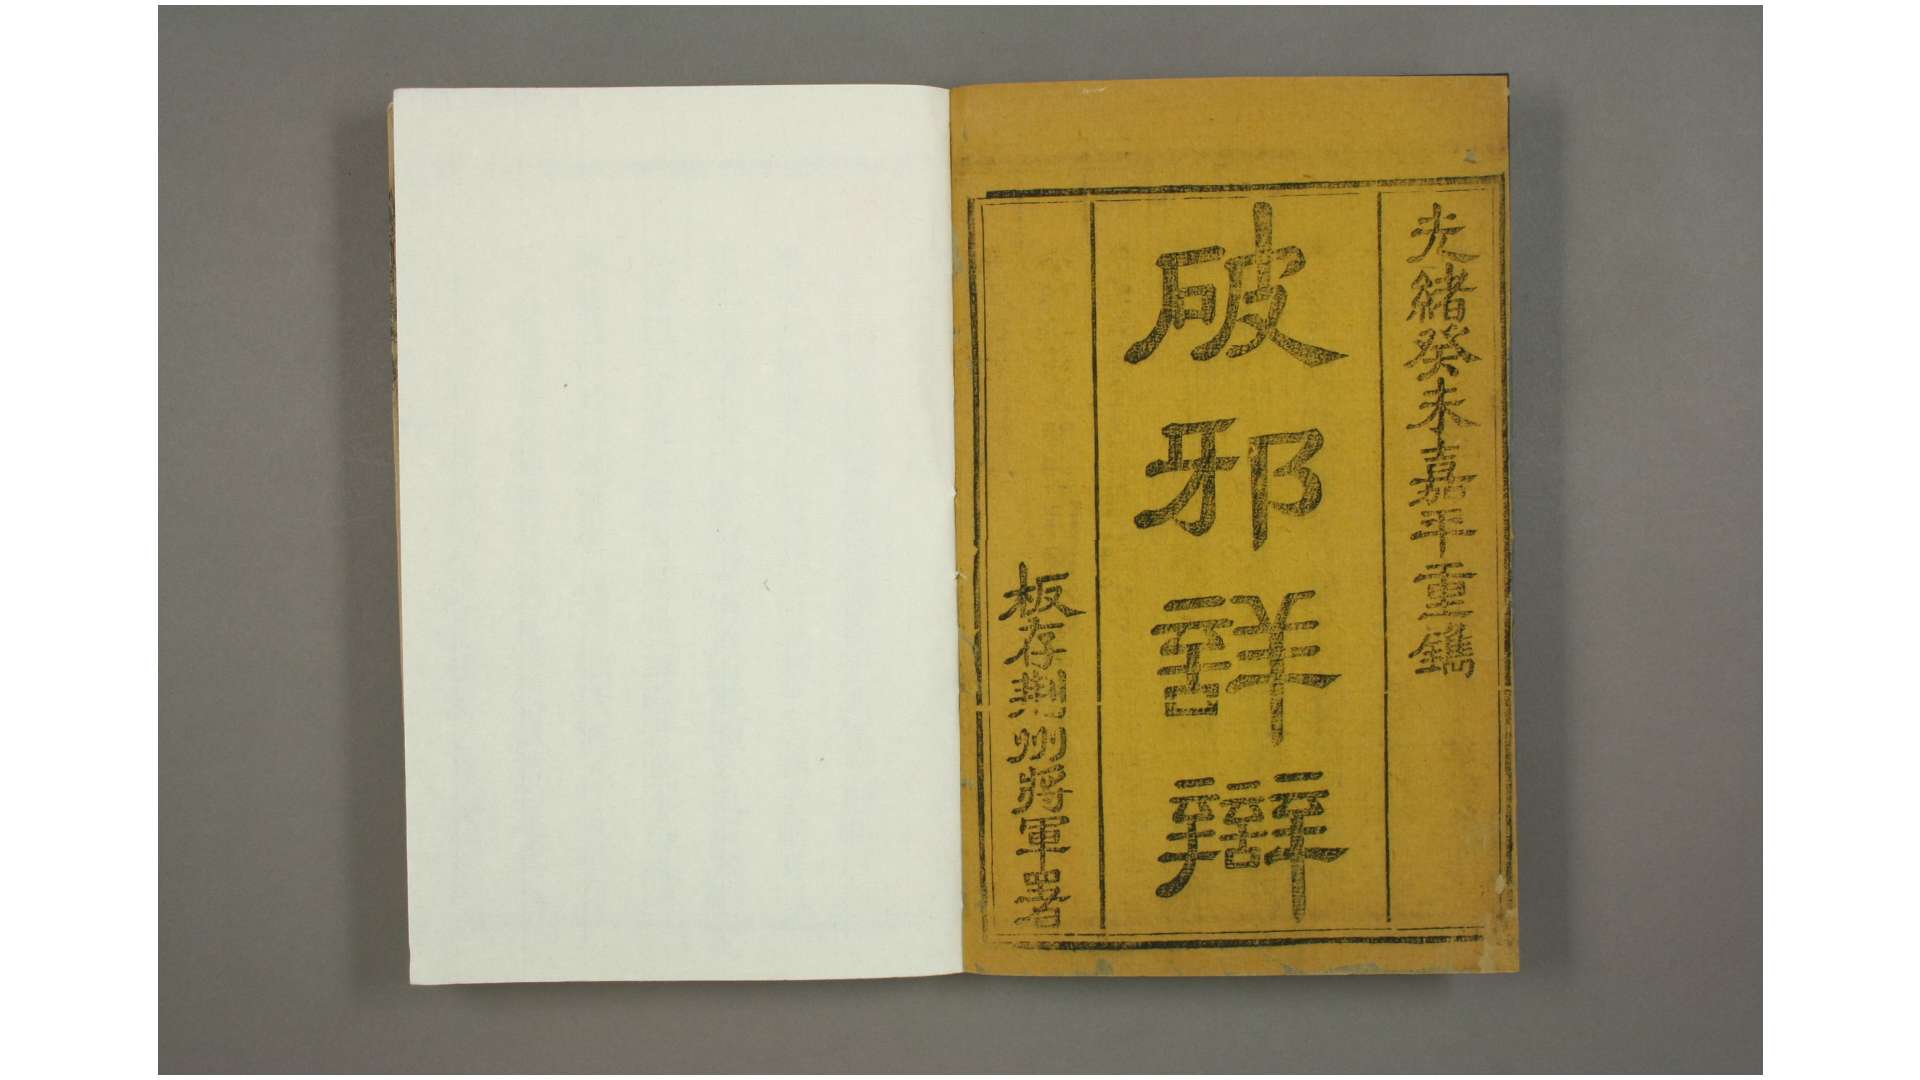 光緒癸未嘉平重鐫
破邪詳辯
板存荊州將軍署